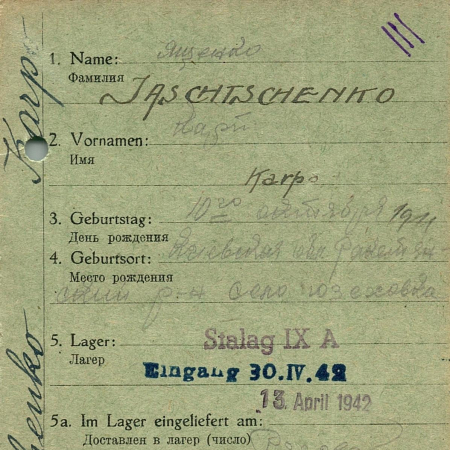 Karp
1. Name: Ященко
Фамилия
JASCHTSCHENKO
2. Vornamen: Карп
Имя
Karp
3. Geburtstag: 10го октября 1911
День рождения
4. Geburtsort:
Место рождения
р-н село
5. Lager: Stalag IX A
Лагер
Eingang 30.IV.42
13. April 1942
5a. Im Lager eingeliefert am:
Доставлен в лагер (число)